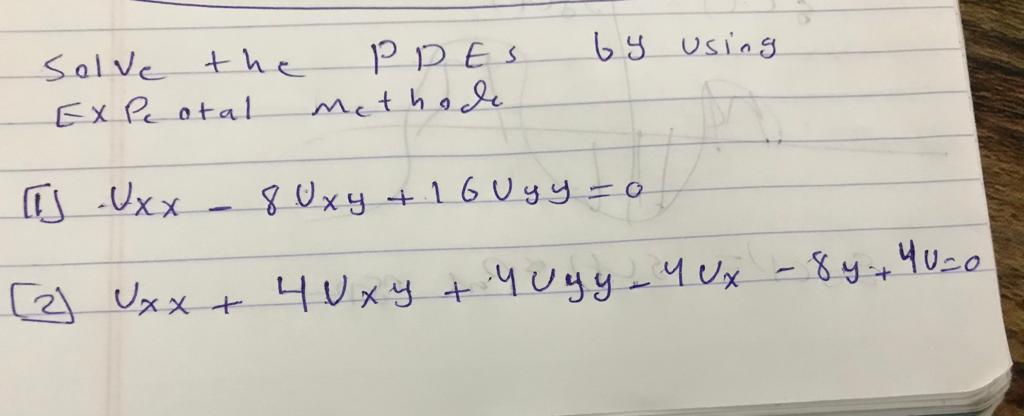 Solve the PDEs by using
ExPeotal methode
[1] Uxx - 8Uxy + 16Uyy = 0
[2] Uxx + 4Uxy + 4Uyy - 4Ux - 8y + 4U=0